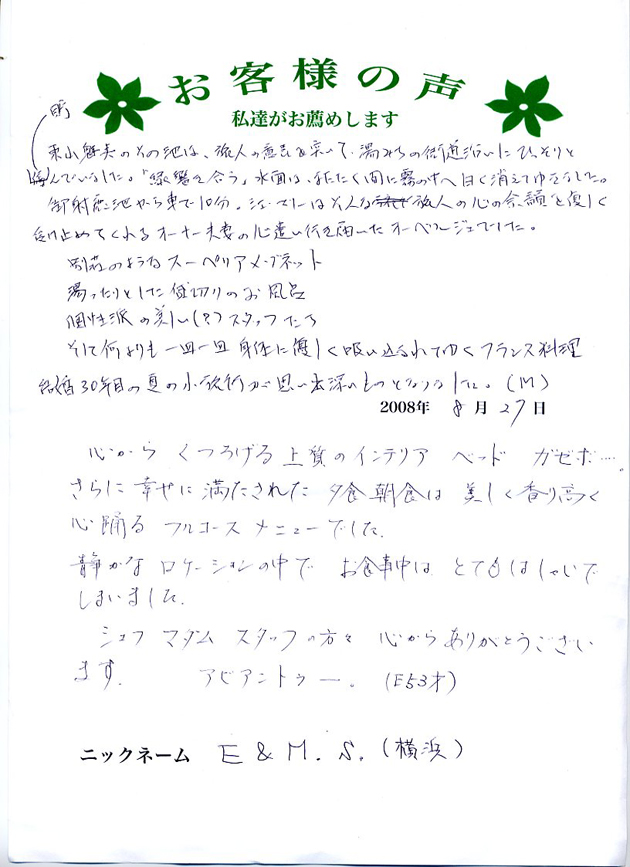 お客様の声
私達がお薦めします
東山魁夷のその池は、旅人の意表を突いて、湯みちの街道沿いにひっそりと
んでいました。「緑響き合う」水面は、またたく間に霧の中へ白く消えてゆきました。
御射鹿池から車で10分。シェ・マリーはそんな旅人の心の余韻を優しく
受け止めてくれるオーナー夫妻の心遣い行き届いたオーベルジュでした。
別荘のようなスーペリアメゾネット
湯ったりとした貸切りのお風呂
個性派の美しい(?)スタッフたち
そして何よりも一皿一皿身体に優しく吸い込まれてゆくフランス料理
結婚30年目の夏の小旅行が思い出深いものとなりました。(M)
2008年 8月 27日
心から くつろげる 上質のインテリア ベッド ガゼボ……
さらに 幸せに 満たされた 夕食 朝食は 美しく 香り高く
心踊る フルコース メニューでした。
静かな ロケーションの中で お食事中は とてもはしゃいで
しまいました。
シェフ マダム スタッフの方々 心からありがとうござい
ます。 アビアントゥー。 (E53才)
ニックネーム E & M. S. (横浜)